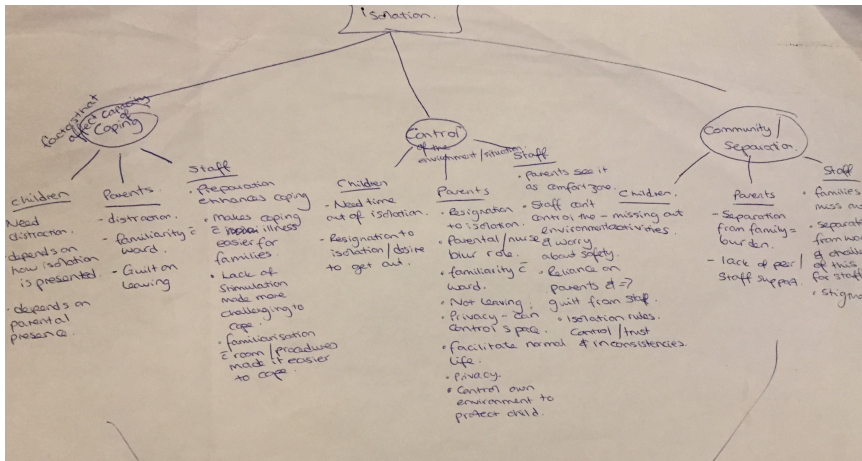 isolation.
factors that
affect capacity
of
Coping
Control
of the
environment/situation.
Community/
Separation.
Children
Need
distraction.
- depends on
how isolation
is presented.
• depends on
parental
presence.
Parents.
- distraction.
- familiarity c̄
ward.
- Guilt on
leaving
Staff
• Preparation
enhances coping
• makes coping
c̄ illness
easier for
families.
• Lack of
Stimulation
made more
challenging to
cope.
• familiarisation
c̄ room/procedures
made it easier
to cope.
Children
- Need time
out of isolation.
- Resignation to
isolation/desire
to get out.
Parents
• Resignation
to isolation.
• Parental/nurse
blur role.
• familiarity c̄
ward.
• Not leaving.
• Privacy - can
control space.
• facilitate normal
life.
• Privacy.
• Control own
environment to
protect child.
Staff
• Parents see it
as comfort zone.
• Staff can't
control the
environment
& worry
about safety.
• Reliance on
parents & =>
guilt from staff.
• Isolation rules.
Control/trust
& inconsistencies.
Children.
- missing out
activities.
Parents
- Separation
from family =
burden.
- lack of peer/
Staff support.
Staff
• families
miss ou
• separate
from
&
of this
for staff
• stigm